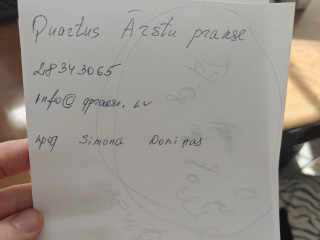 Quartus Ārstu prakse
28343065
Info@qprakse.lv
Simona Doniņas